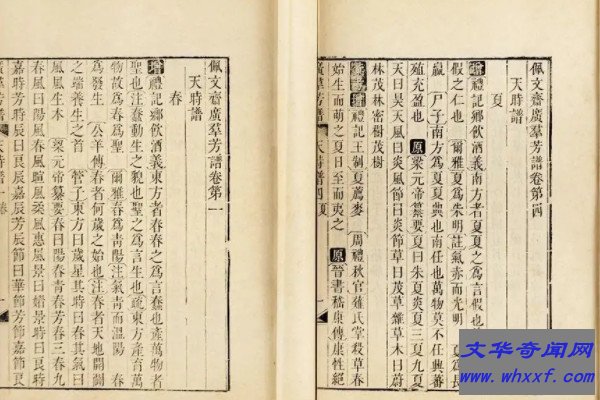 佩文齋廣羣芳譜卷第四
天時譜
夏
增禮記鄉飲酒義南方者夏夏之爲言假也
假之仁也 爾雅夏爲朱明註氣赤而光明 夏爲長
嬴 尸子南方爲夏夏興也南任也萬物莫不任興蕃
殖充盈也 原梁元帝纂要夏曰朱夏炎夏三夏九夏
天曰昊天風曰炎風節曰炎節草曰茂草雜草木曰蔚
林茂林密樹茂樹
彙考增禮記王制夏薦麥 周禮秋官薙氏掌殺草春
始生而萌之夏日至而夷之 原晉書嵇康傳康性絕
廣羣芳譜 天時譜四 夏 一
佩文齋廣羣芳譜卷第一
天時譜
春
增禮記鄉飲酒義東方者春春之爲言蠢也產萬物者
聖也注蠢動生之貌也聖之爲言生也疏東方產育萬
物故爲春爲聖 爾雅春爲青陽注氣青而溫陽 春
爲發生 公羊傳春者何歲之始也注春者天地開闢
之端養生之首 管子東方曰歲星其時曰春其氣曰
風風生木 梁元帝纂要春曰陽春青春芳春三春九
春風曰陽風春風暄風柔風惠風景曰媚景時曰良時
嘉時芳時辰曰良辰嘉辰芳辰節曰華節芳節嘉節
廣羣芳譜 天時譜
文华奇闻网
www.whxxf.com